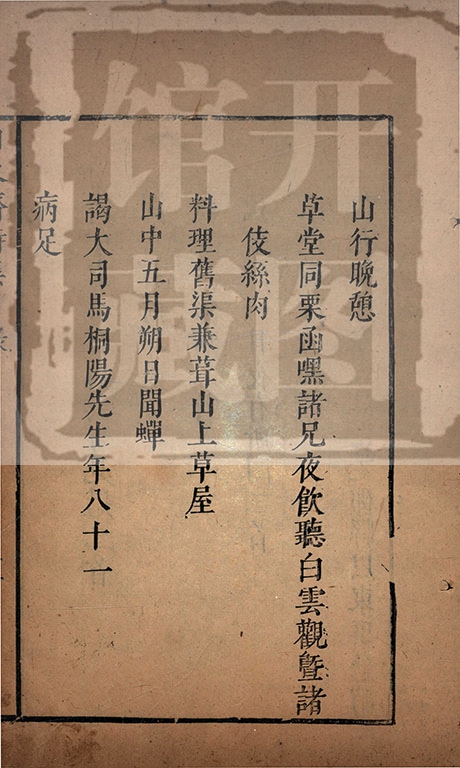 山行晚憩
草堂同栗函嘿諸兄夜飲聽白雲觀曁諸
伎絲肉
料理舊渠兼葺山上草屋
山中五月朔日聞蟬
謁大司馬桐陽先生年八十一
病足
開圖
館藏